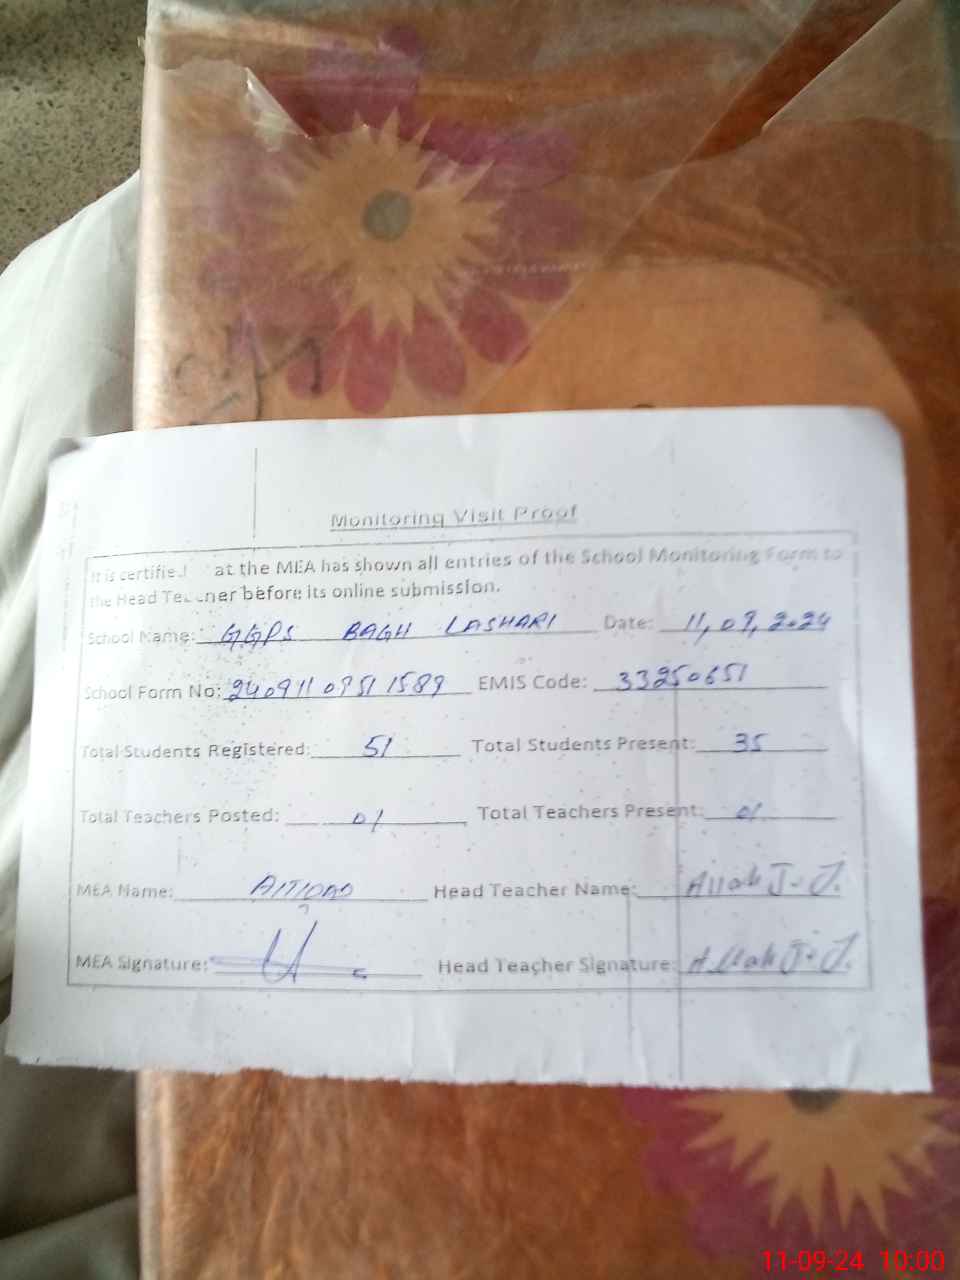 Monitoring Visit Proof
It is certified at the MEA has shown all entries of the School Monitoring Form to
the Head Teacher before its online submission.
School Name: GGPS BAGH LASHARI Date: 11,09,2024
School Form No: 24091109511589 EMIS Code: 33250651
Total Students Registered: 51 Total Students Present: 35
Total Teachers Posted: 01 Total Teachers Present: 01
MEA Name: Head Teacher Name: Allah J. J.
MEA Signature: Head Teacher Signature: Allah J. J.
11-09-24 10:00